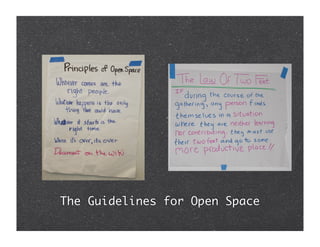 Principles of Open Space
Whoever comes are the
right people
Whatever happens is the only
thing that could have
Whenever it starts is the
right time
When it's over, its over
Document on the wiki
The Law Of Two Feet
If during the course of the
gathering, any person finds
themselves in a situation
where they are neither learning
nor contributing, they must use
their two feet and go to some
more productive place!!
The Guidelines for Open Space